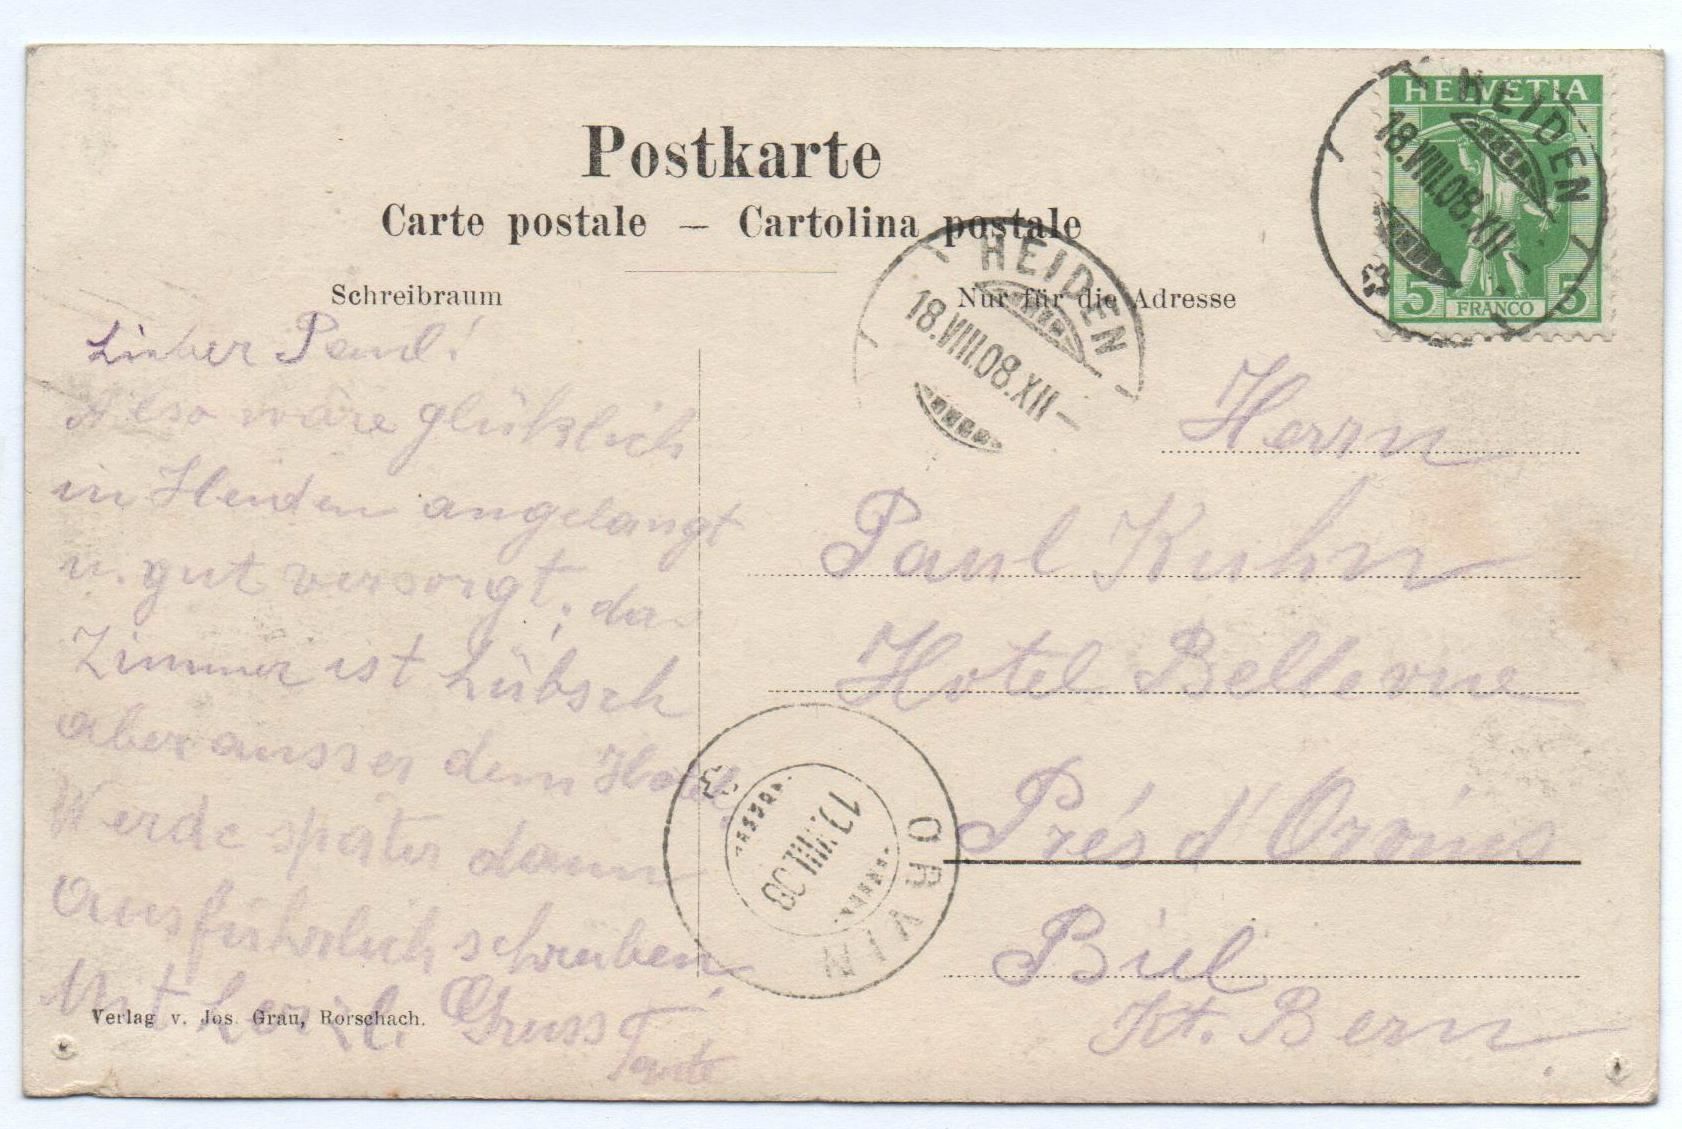 HELVETIA
5 FRANCO 5
HEIDEN
18.VIII.08.XII-
Postkarte
Carte postale — Cartolina postale
Schreibraum
Nur für die Adresse
HEIDEN
18.VIII.08.XII-
Lieber Paul!
Also wäre glücklich
in Heiden angelangt
u. gut versorgt; das
Zimmer ist hübsch
aber ausser dem Hotel.
Werde später dann
ausführlich schreiben.
Mit herzl. Gruss
Tante
Herrn
Paul Kuhn
Hotel Bellevue
Prés d'Orvins
Biel
Kt. Bern.
ORVIN
19.VIII.08
Verlag v. Jos. Grau, Rorschach.